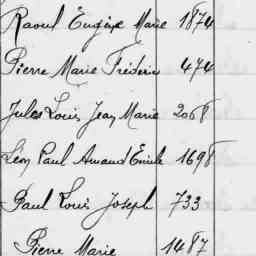 Raoul Eugène Marie 1874
Pierre Marie Fréderic 474
Jules Louis Jean Marie 2068
Léon Paul Amand Emile 1698
Paul Louis Joseph 733
Pierre Marie 1487